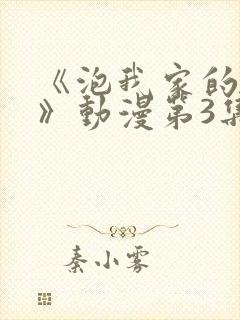 《泡我家的
》动漫第3集
秦小雾